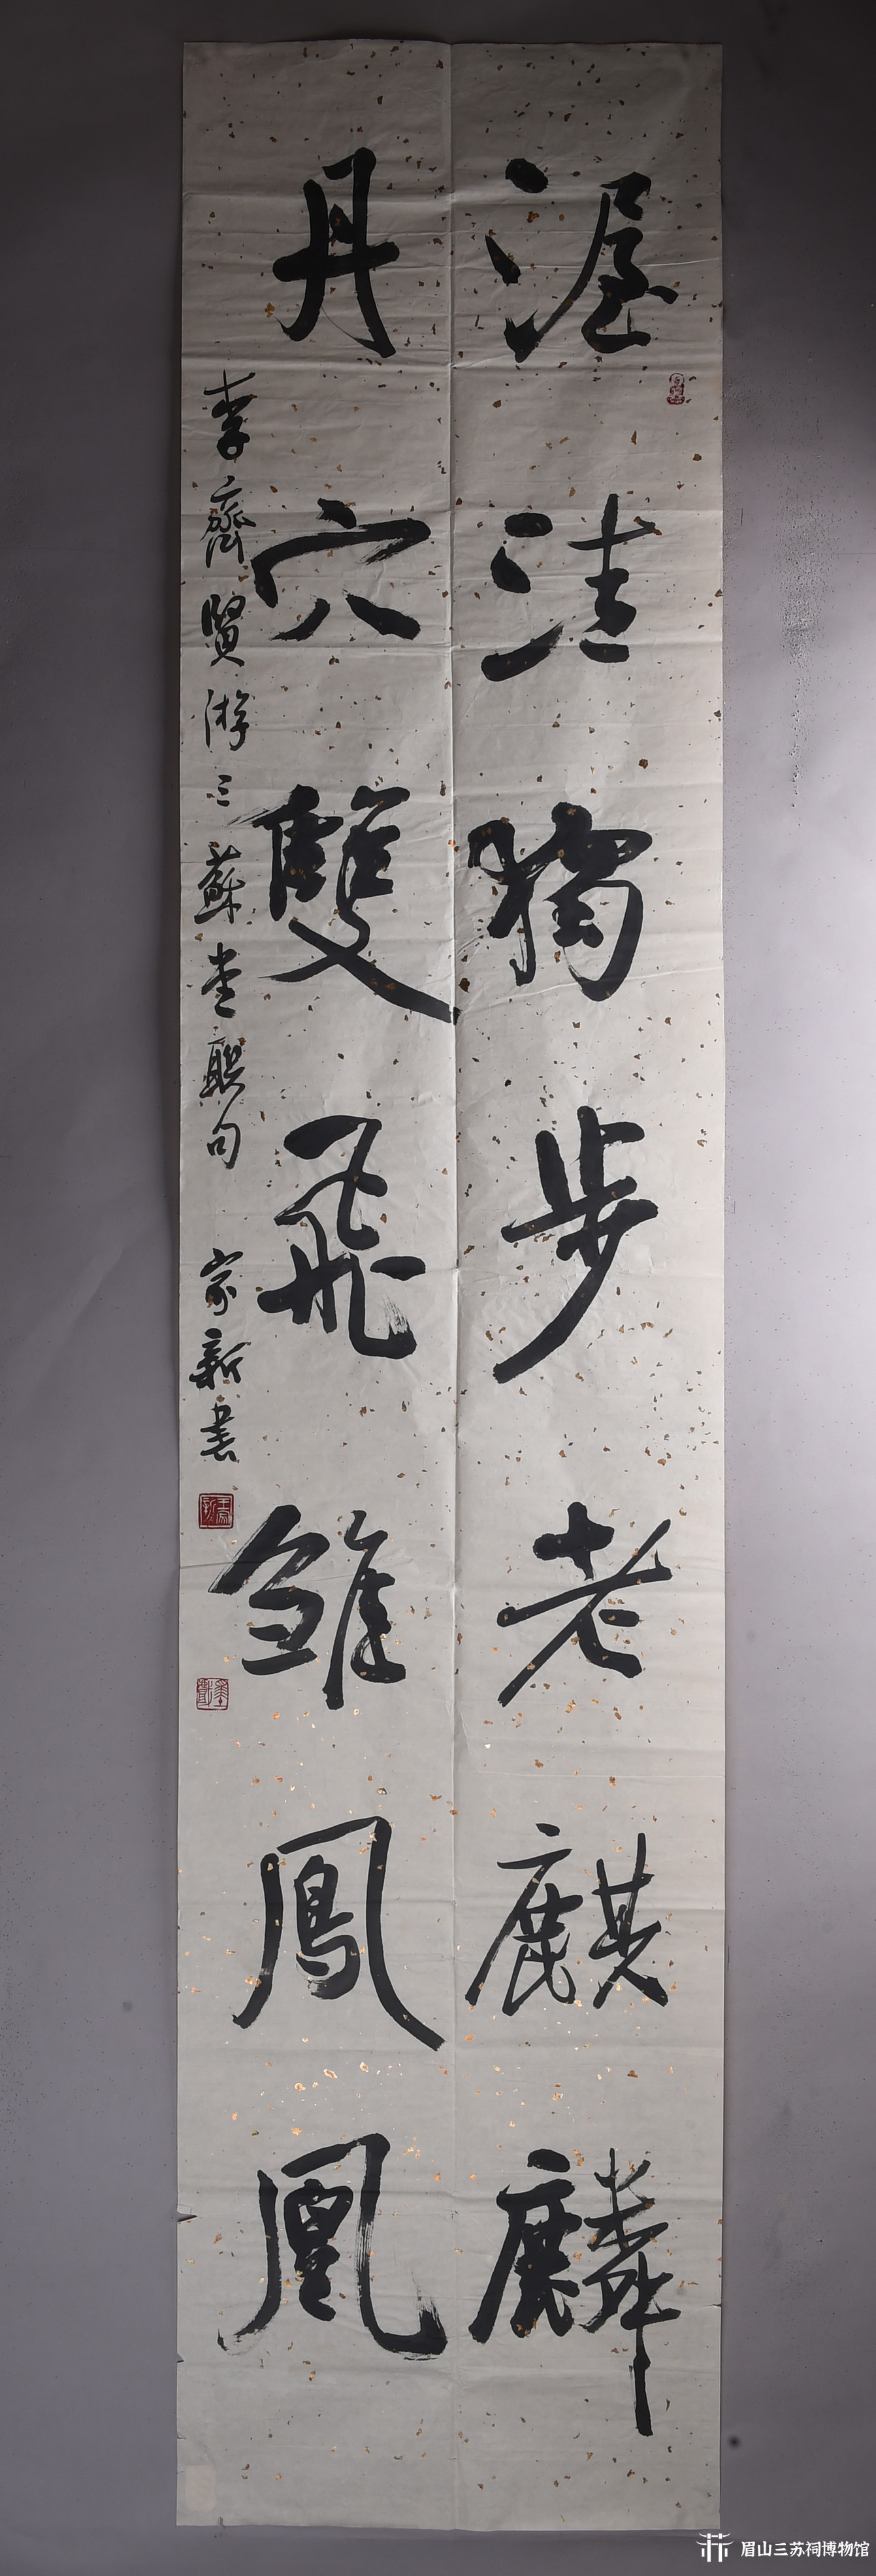 渥洼獨步老麒麟
丹穴雙飛雛鳳凰
李齊賢游三蘇堂聯句 家新書
眉山三苏祠博物馆